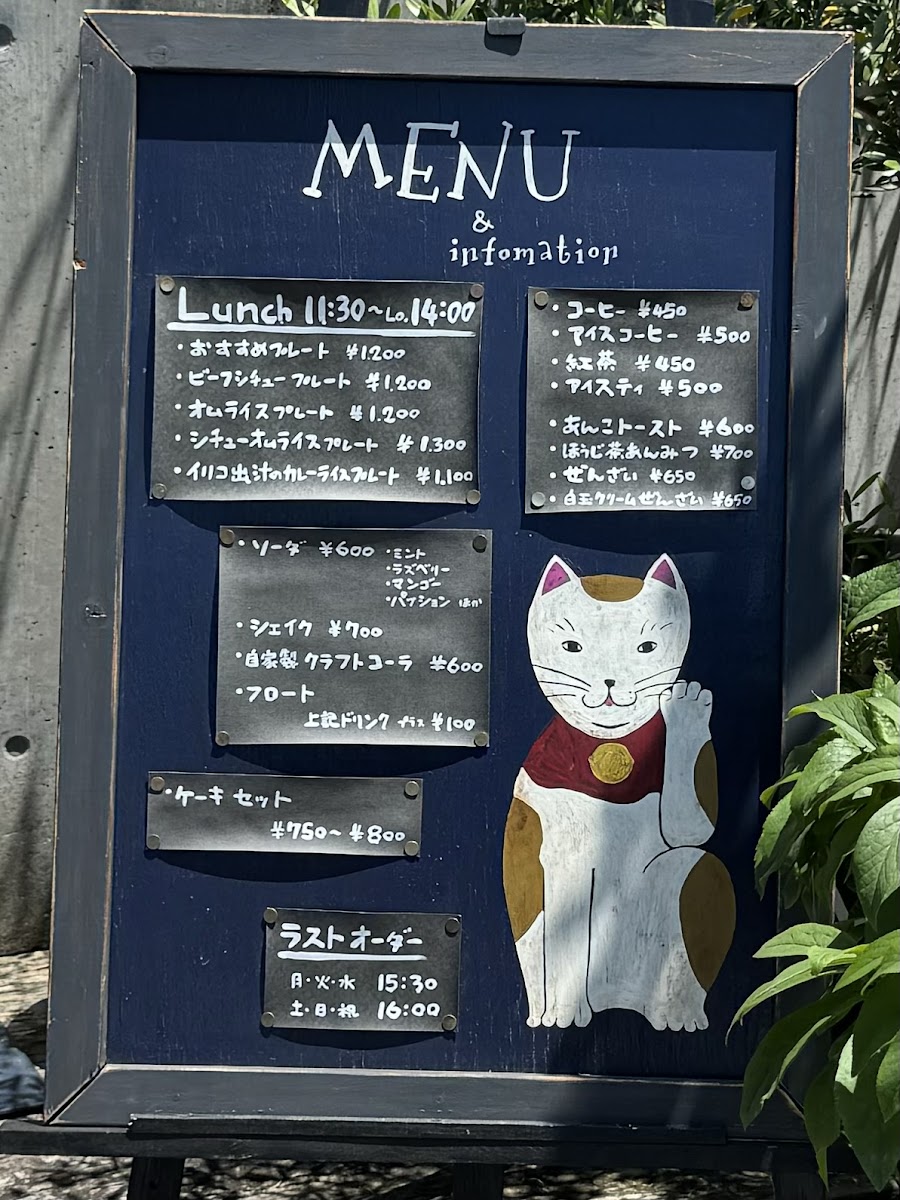 MENU
&
infomation
Lunch 11:30~Lo.14:00
・おすすめプレート ¥1.200
・ビーフシチュープレート ¥1.200
・オムライスプレート ¥1.200
・シチューオムライスプレート ¥1.300
・イリコ出汁のカレーライスプレート ¥1.100
・コーヒー ¥450
・アイスコーヒー ¥500
・紅茶 ¥450
・アイスティ ¥500
・あんこトースト ¥600
・ほうじ茶あんみつ ¥700
・ぜんざい ¥650
・白玉クリームぜんざい ¥650
・ソーダ ¥600
・ミント
・ラズベリー
・マンゴー
・パッション ほか
・シェイク ¥700
・自家製クラフトコーラ ¥600
・フロート
上記ドリンク プラス ¥100
・ケーキセット
¥750~¥800
ラストオーダー
月・火・水 15:30
土・日・祝 16:00